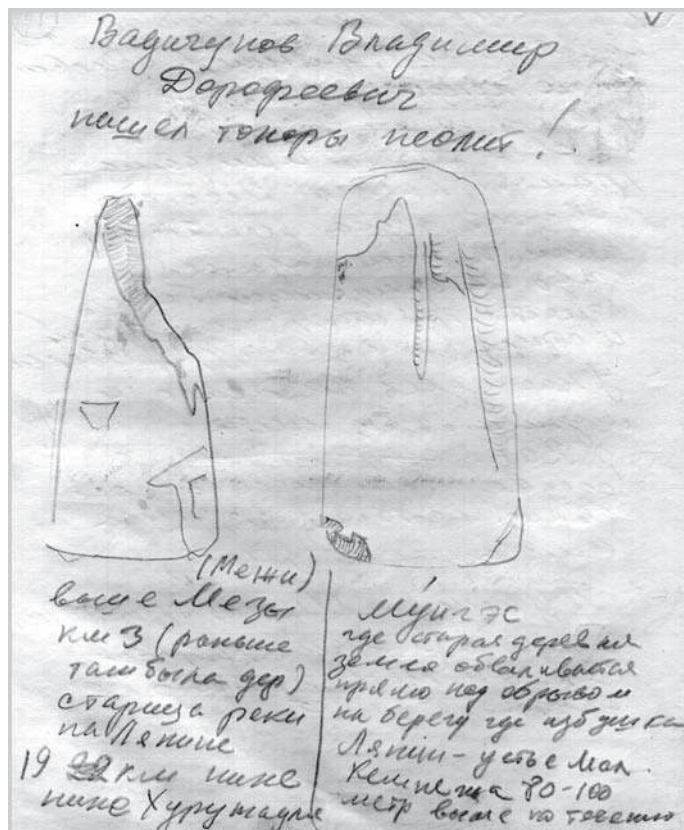 Вадичупов Владимир
Дорофеевич
нашел топоры неолит!
(Межи)
выше Мезы
км 3 (раньше
там была дер)
старица реки
на Ляпине
19 км ниже
ниже Хурумпауля
Мунгэс
где старая деревня
земля обваливается
прямо под обрывом
на берегу где избушка
Ляпин - устье Мал.
80-100
метр выше по течению